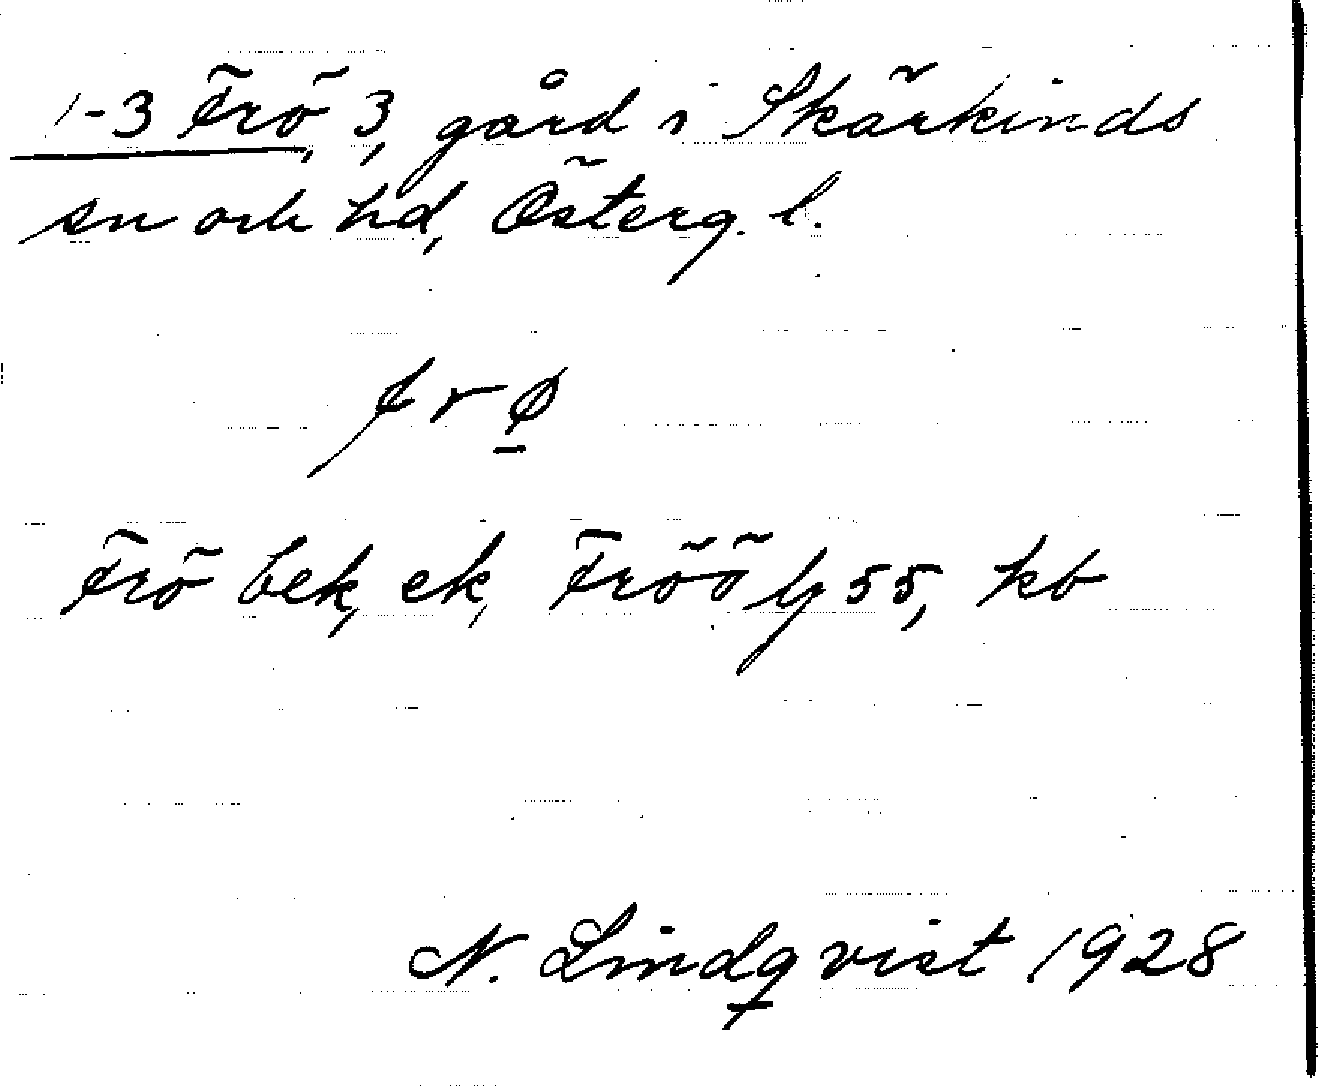 1-3 Frö, 3, gård i Skärkinds
sn och hd, Österg. l.
frø̲
Frö bek, ek, Fröö ly 55, kb
N. Lindqvist 1928